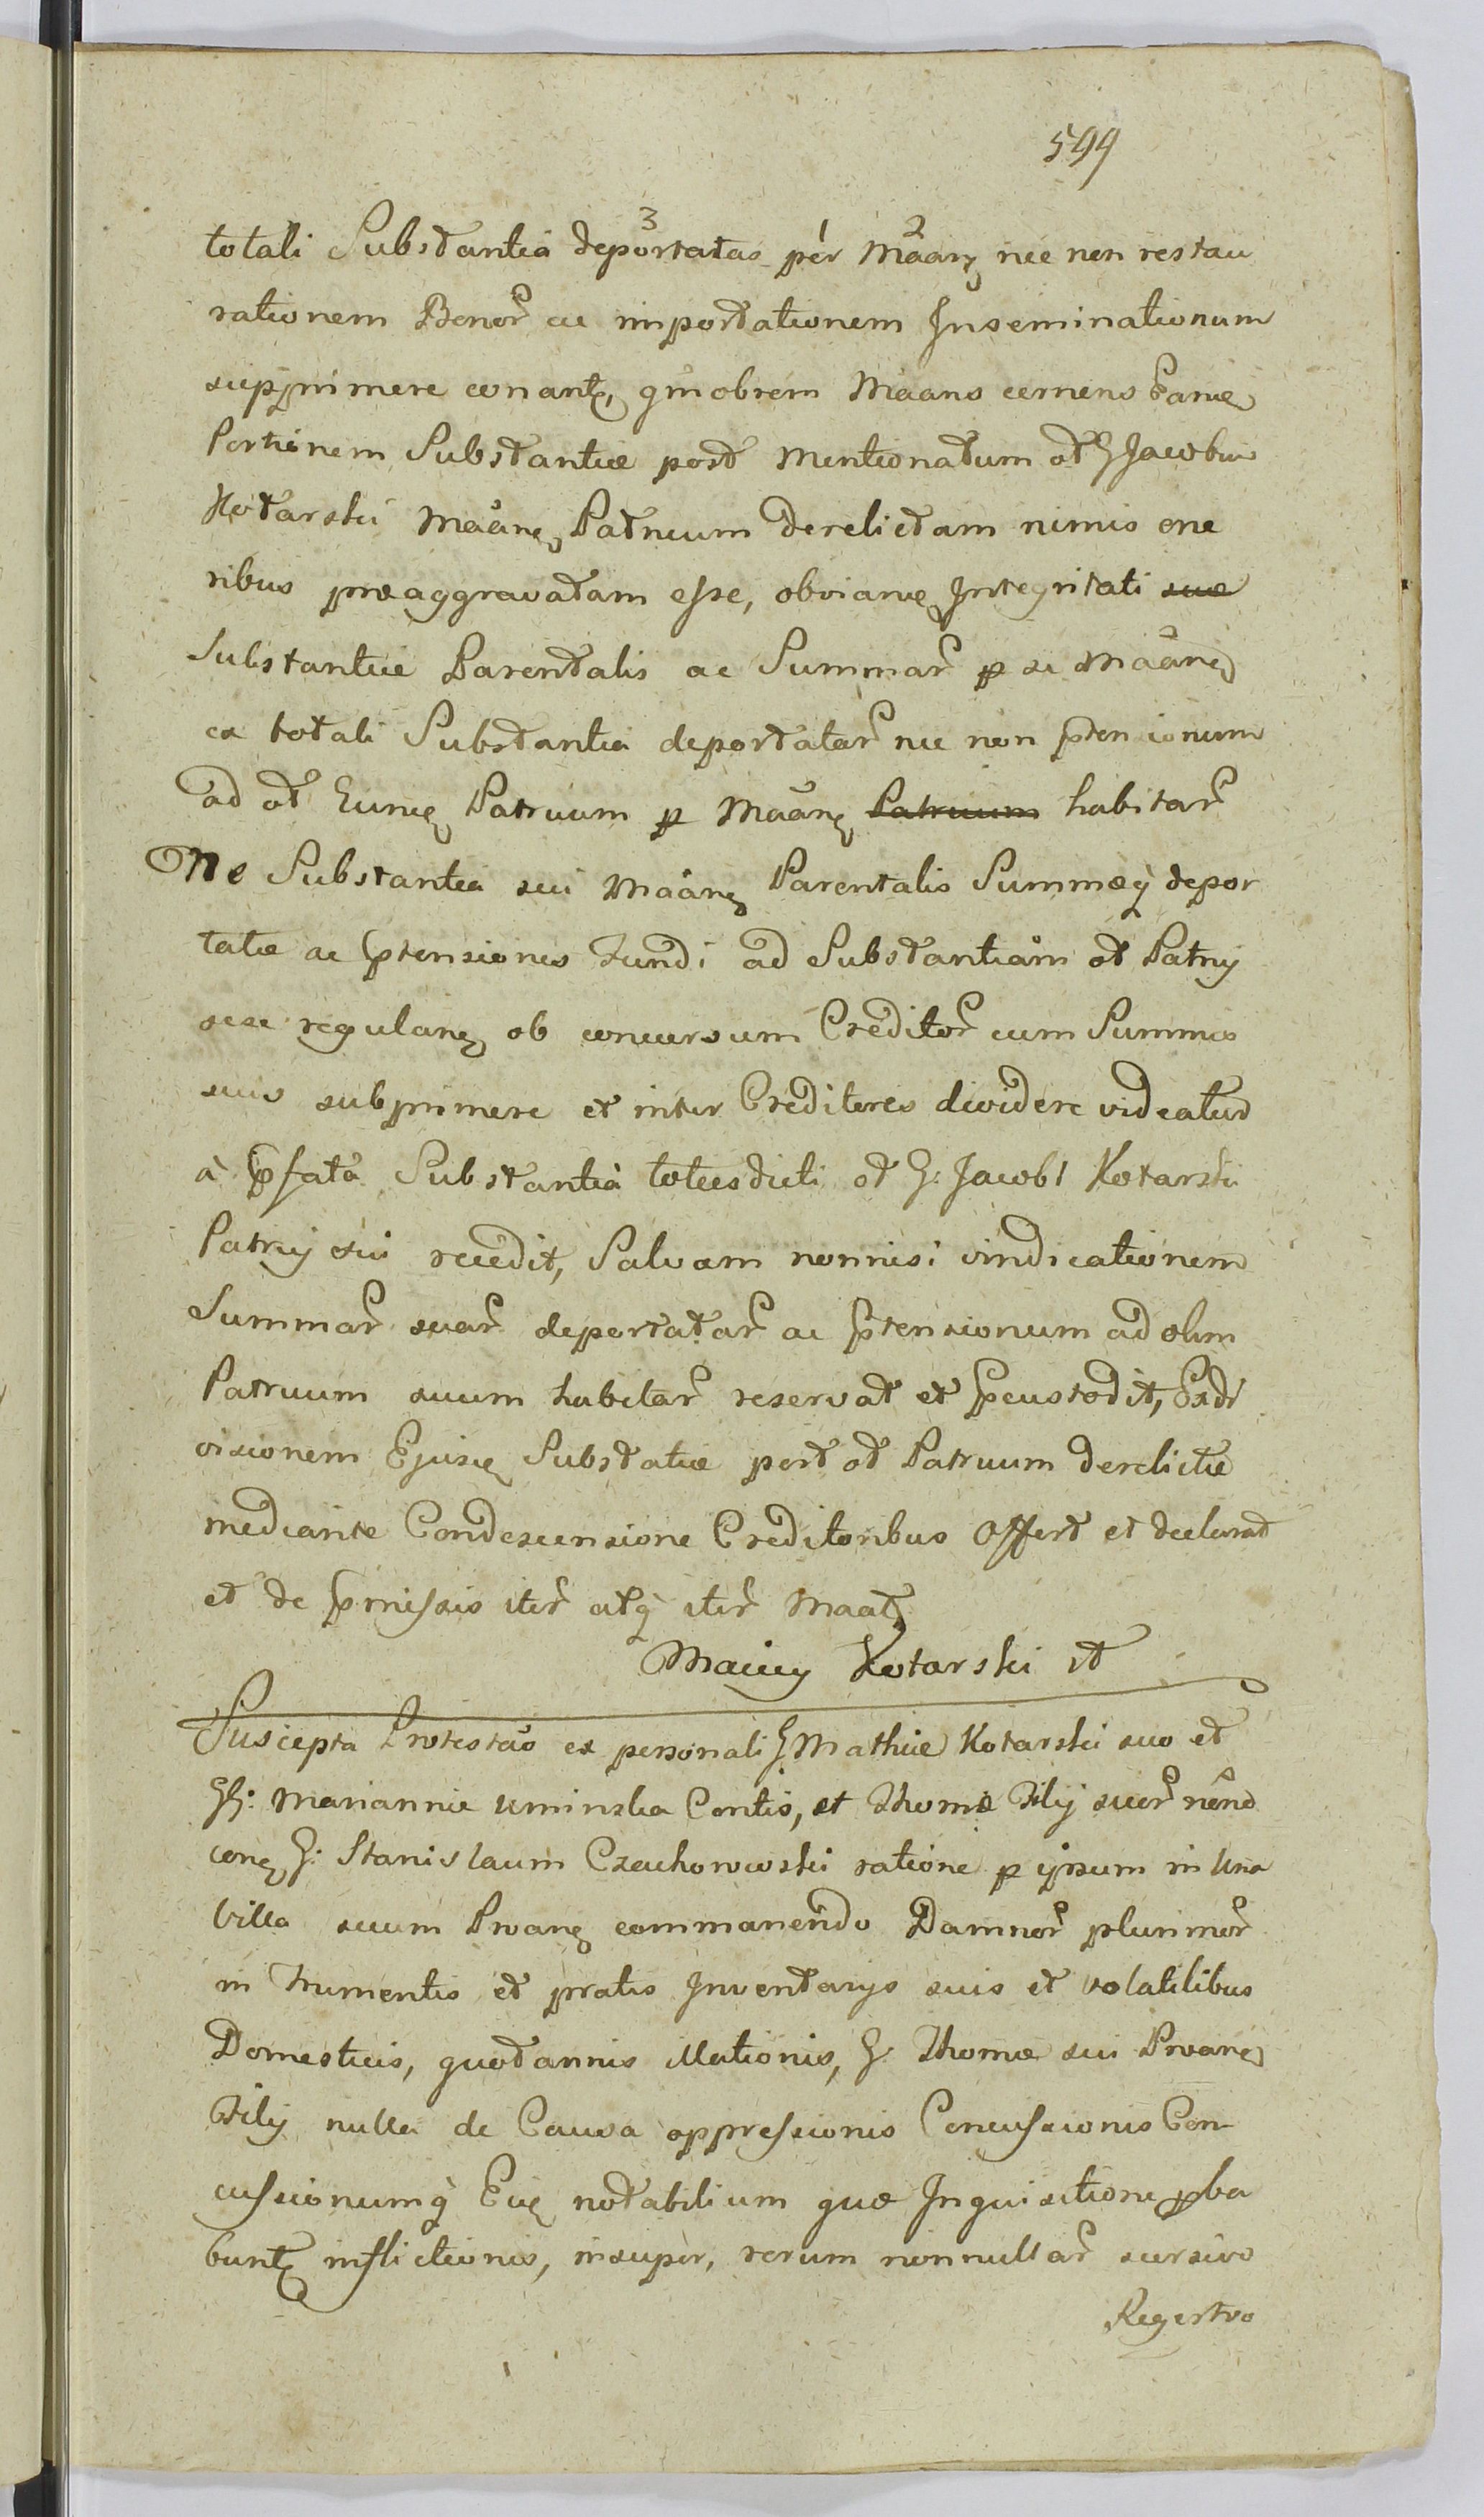 599
totali Substantia deportatas per Mãan̄ nec non restau
rationem Bonor̃ ac importationem Inseminationum
supprimere conant, quiobrem Maans cernens Eam
Portionem Substantiæ post mentionatum ol G Jacobum
Kotarski Mãan Patruum derelictam nimis one
ribus præaggravatam esse, obvian Integritati suæ
Substantiæ Parentalis ac Summar̃ p se Mãan
ex totali Substantia deportatar̃ nec non ptensionum
ad ol Eun Patruum p Mãan Patruum habitar̃
Ne Substantia sui Mãan Parentalis Summæq̀ depor
tatæ ac ptensiones Fundi ad Substantiam ol Patrij
sese regulan ob concursum Creditor̃ cum Summis
suis subprimere et inter Creditores dividere videatur
à pfata Substantia totiesdicti ol G: Jacobi Kotarski
Patrij sui recedit, Salvam nonnisi vindicationem
Summar̃ suar̃ deportatar̃ ac ptensionum ad olim
Patruum suum habitar̃ reservat et pcustodit, Exdi
visionem Ejusq Substatiæ post ol Patruum derelictæ
mediante Condescensione Creditoribus offert et declarat
et de pmissis iter̃ atq̀ iter̃ Maat
Maciey Kotarski
Suscepta Protestão ex personali G Mathiæ Kotarski suo et
GG: Mariannæ Uminska Contis, et Thomæ Filij suor̃ nõne
con G: Stanislaum Czachorowski ratione p ipsum in Una
Villa secum Proan commanendo Damnor̃ plurimor̃
in Frumentis et pratis Inventarys suis et volatilibus
Domesticis, quotannis illationis, G. Thomæ sui Proan
Filij nulla de Causa oppressionis Concussionis Con
cussionumq̀ Eiq notabilium quæ Inquisitione pba
bunt inflictionis, insuper, rerum nonnullar̃ seorsivo
Regestro